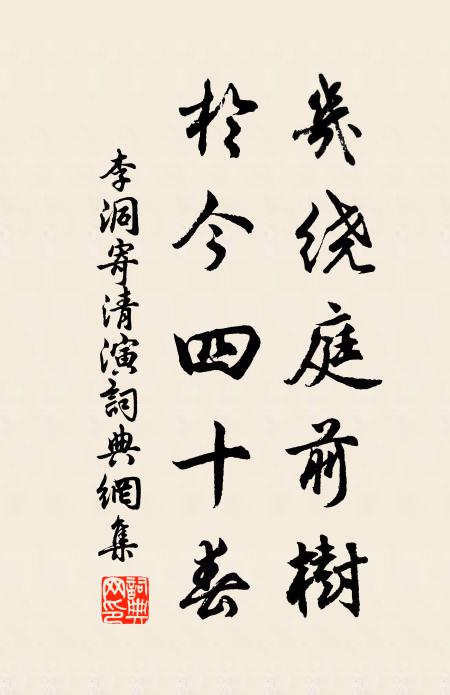 幾绕庭前樹
於今四十春
李洞寄清演詞典網集
詞典网印